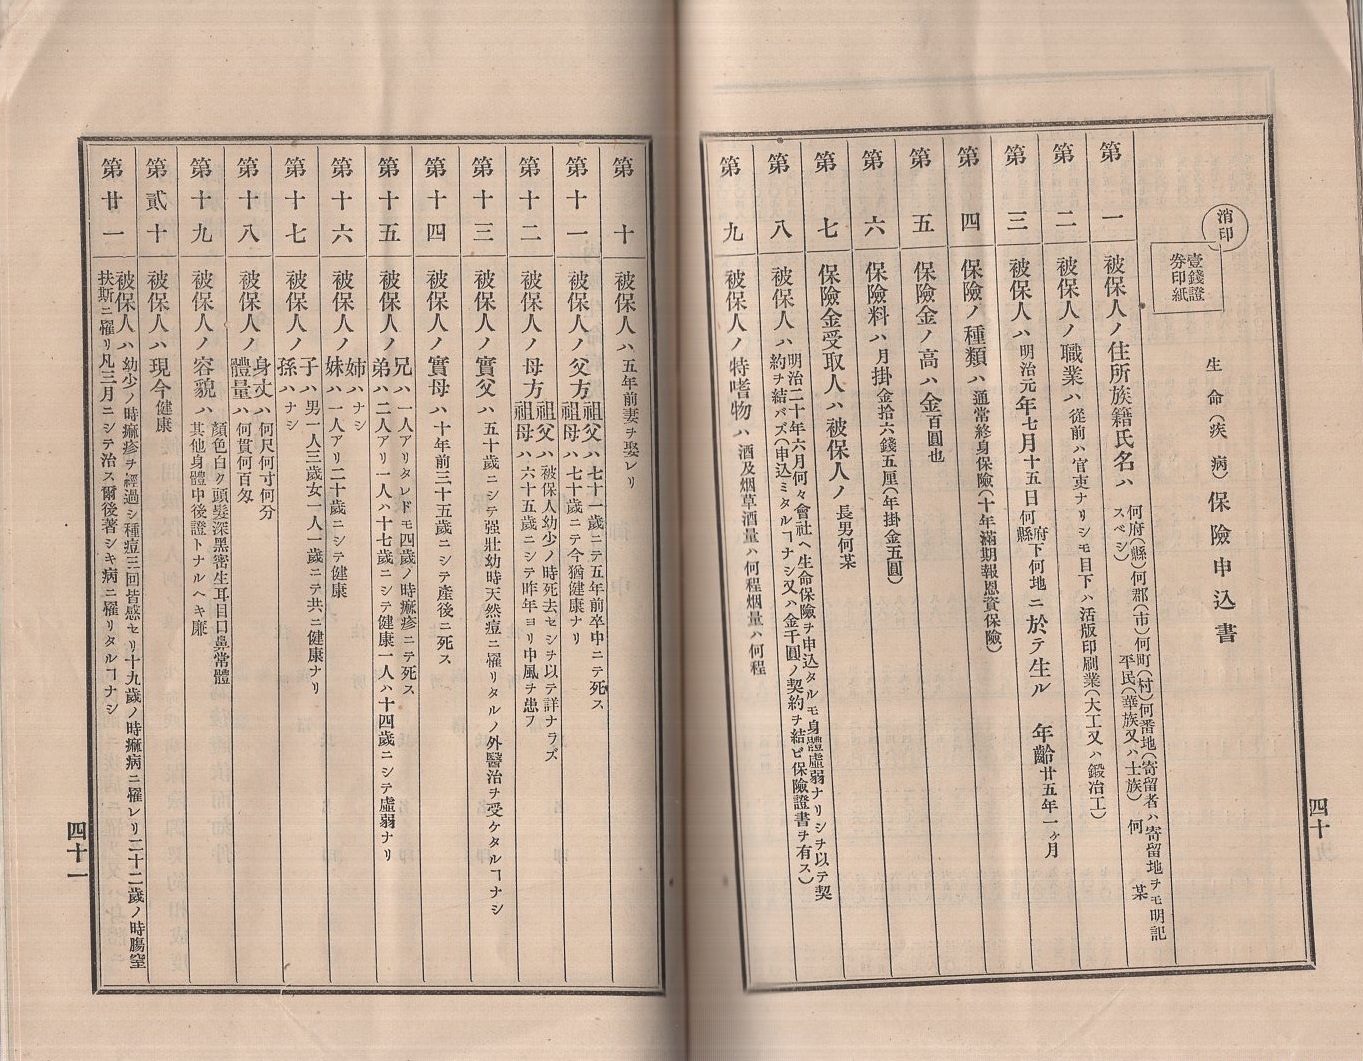 消印
壹錢證
券印紙
生命(疾病)保險申込書
第一 被保人ノ住所族籍氏名ハ 何府(縣)何郡(市)何町(村)何番地(寄留者ハ寄留地ヲモ明記
スベシ) 平民(華族又ハ士族) 何 某
第二 被保人ノ職業ハ 從前ハ官吏ナリシモ目下ハ活版印刷業(大工又ハ鍛冶工)
第三 被保人ハ明治元年七月十五日何府縣下何地ニ於テ生ル 年齡廿五年一ヶ月
第四 保險ノ種類ハ通常終身保險(十年滿期報恩資保險)
第五 保險金ノ高ハ金百圓也
第六 保險料ハ月掛金拾六錢五厘(年掛金五圓)
第七 保險金受取人ハ被保人ノ長男何某
第八 被保人ハ 明治二十年六月何々會社ヘ生命保險ヲ申込タルモ身體虛弱ナリシヲ以テ契
約ヲ結バズ(申込ミタルヿナシ又ハ金千圓ノ契約ヲ結ビ保險證書ヲ有ス)
第九 被保人ノ特嗜物ハ 酒及烟草酒量ハ何程烟量ハ何程
四十
第十 被保人ハ五年前妻ヲ娶レリ
第十一 被保人ノ父方 祖父ハ七十一歲ニテ五年前卒中ニテ死ス
祖母ハ七十歲ニテ今猶健康ナリ
第十二 被保人ノ母方 祖父ハ被保人幼少ノ時死去セシヲ以テ詳ナラズ
祖母ハ六十五歲ニシテ昨年ヨリ中風ヲ患フ
第十三 被保人ノ實父ハ五十歲ニシテ强壯幼時天然痘ニ罹リタルノ外醫治ヲ受ケタルヿナシ
第十四 被保人ノ實母ハ十年前三十五歲ニシテ產後ニ死ス
第十五 被保人ノ 兄ハ一人アリタレドモ四歲ノ時痲疹ニテ死ス
弟ハ二人アリ一人ハ十七歲ニシテ健康一人ハ十四歲ニシテ虛弱ナリ
第十六 被保人ノ 姉ハナシ
妹ハ一人アリ二十歲ニシテ健康
第十七 被保人ノ 子ハ男一人三歲女一人一歲ニテ共ニ健康ナリ
孫ハナシ
第十八 被保人ノ 身丈ハ何尺何寸何分
體量ハ何貫何百匁
第十九 被保人ノ容貌ハ 顏色白ク頭髮深黑密生耳目口鼻常體
其他身體中後證トナルヘキ廉
第貳十 被保人ハ現今健康
第廿一 被保人ハ幼少ノ時痲疹ヲ經過シ種痘三回皆感セリ十九歲ノ時痲病ニ罹レリ二十二歲ノ時膓窒
扶斯ニ罹リ凡三月ニシテ治ス爾後著シキ病ニ罹リタルヿナシ
四十一